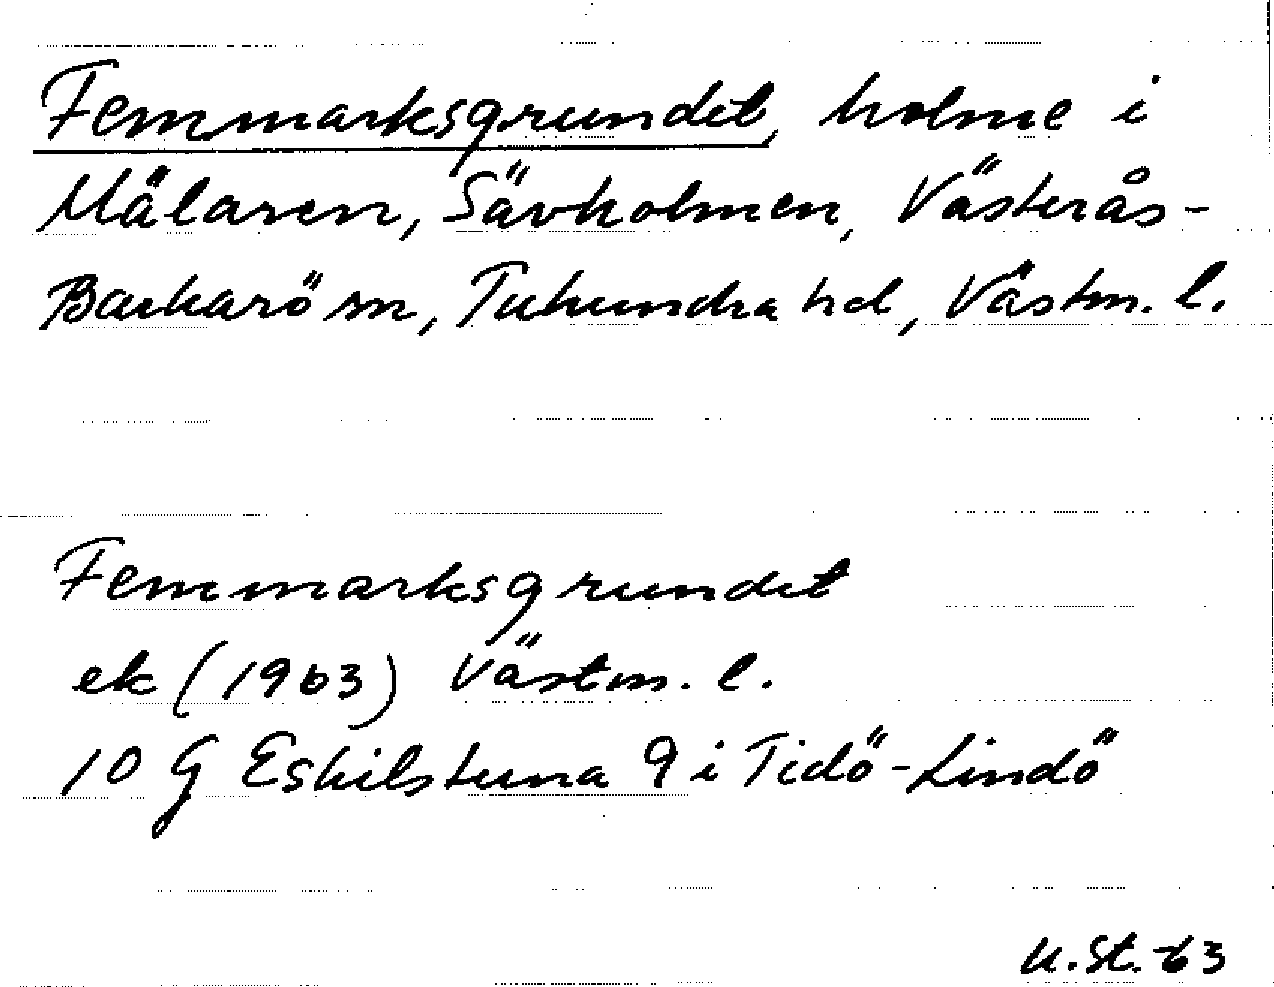 Femmarksgrundet, holme i
Mälaren, Sävholmen, Västerås-
Barkarö sn, Tuhundra hd, Västm. l.
Femmarksgrundet
ek (1963) Västm. l.
10 G Eskilstuna 9 i Tidö-Lindö
U.St. 63